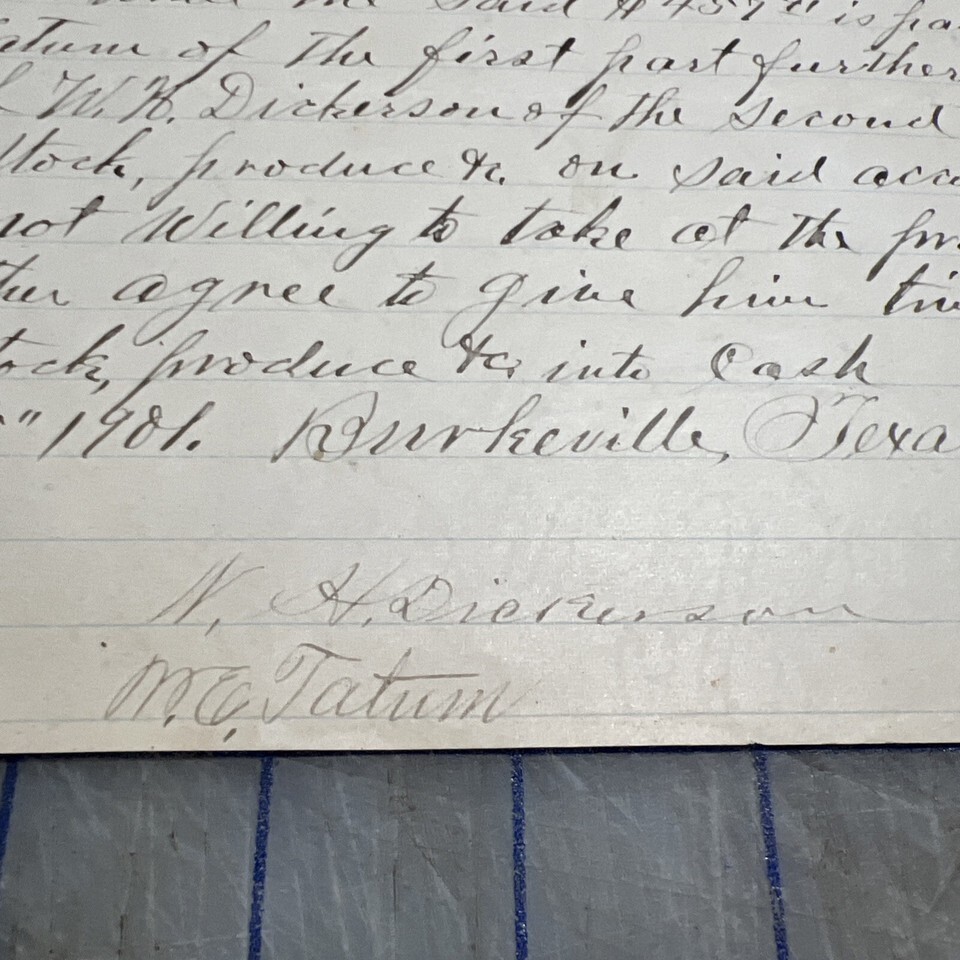 said $457
atum of the first part further
W. H. Dickerson of the second
stock, produce &c. on said acc
not Willing to take at the pr
ther agree to give him tim
tock, produce &c into Cash
" 1901. Burkeville, Texa
W. H. Dickerson
M. E. Tatum